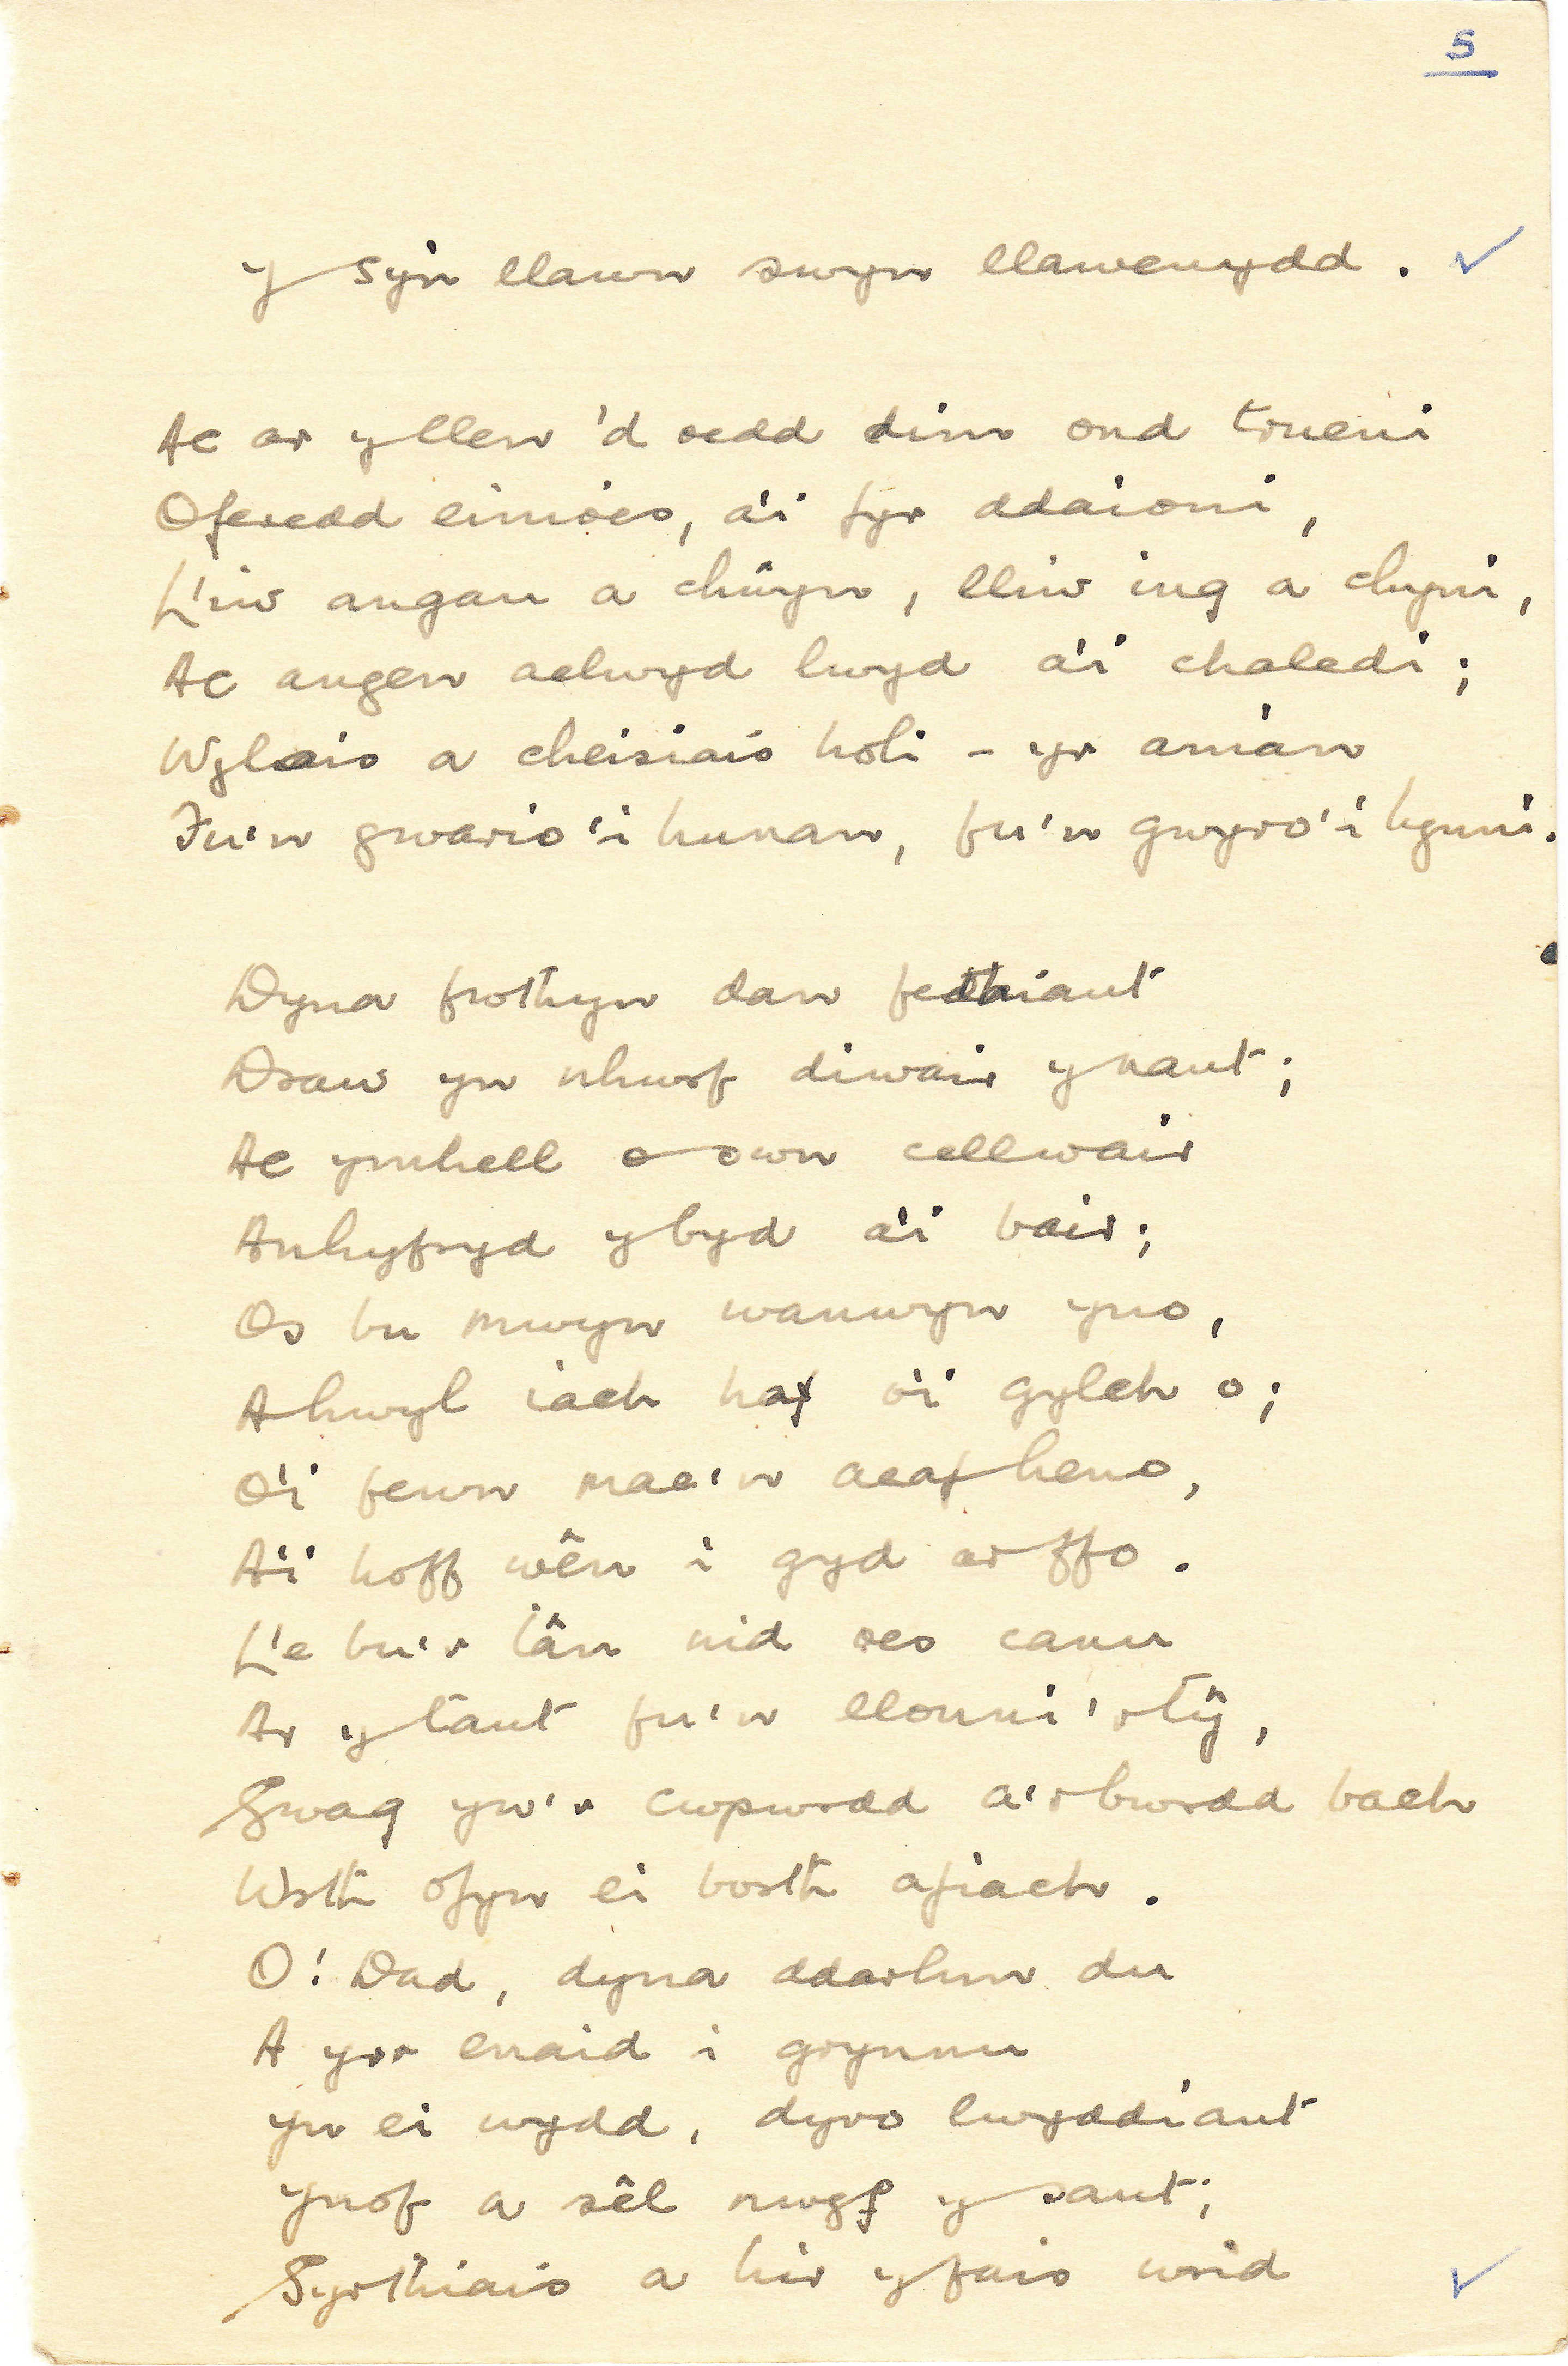 5
y sy'n llawn swyn llawenydd.
Ac ar y llen 'd oedd dim ond trueni
Oferedd einioes, a'i fyr ddaioni,
Lliw angau a chŵyn, lliw ing a chyni,
Ac angen aelwyd lwyd a'i chaledi;
Wylais a cheisiais holi – yr anian
Fu'n gwario'i hunan, fu'n gwyro'i hynni.
Dyna frothyn dan fethiant
Draw yn nhwrf diwair y nant;
Ac ymhell o sŵn cellwair
Anhyfryd y byd a'i bair;
Os bu mwyn wanwyn yno,
A hwyl iach haf o'i gylch o;
O'i fewn mae'n aeaf heno,
A'i hoff wên i gyd ar ffo.
Lle bu'r tân nid oes canu
Ar y tant fu'n llonni'r tŷ,
Gwag yw'r cwpwrdd a'r bwrdd bach
Wrth ofyn ei borth afiach.
O! Dad, dyna ddarlun du
A yrr enaid i grynnu
yn ei wydd, dyro lwyddiant
ynof a sêl nwyf y sant;
Syrthiais a hir yfais wrid